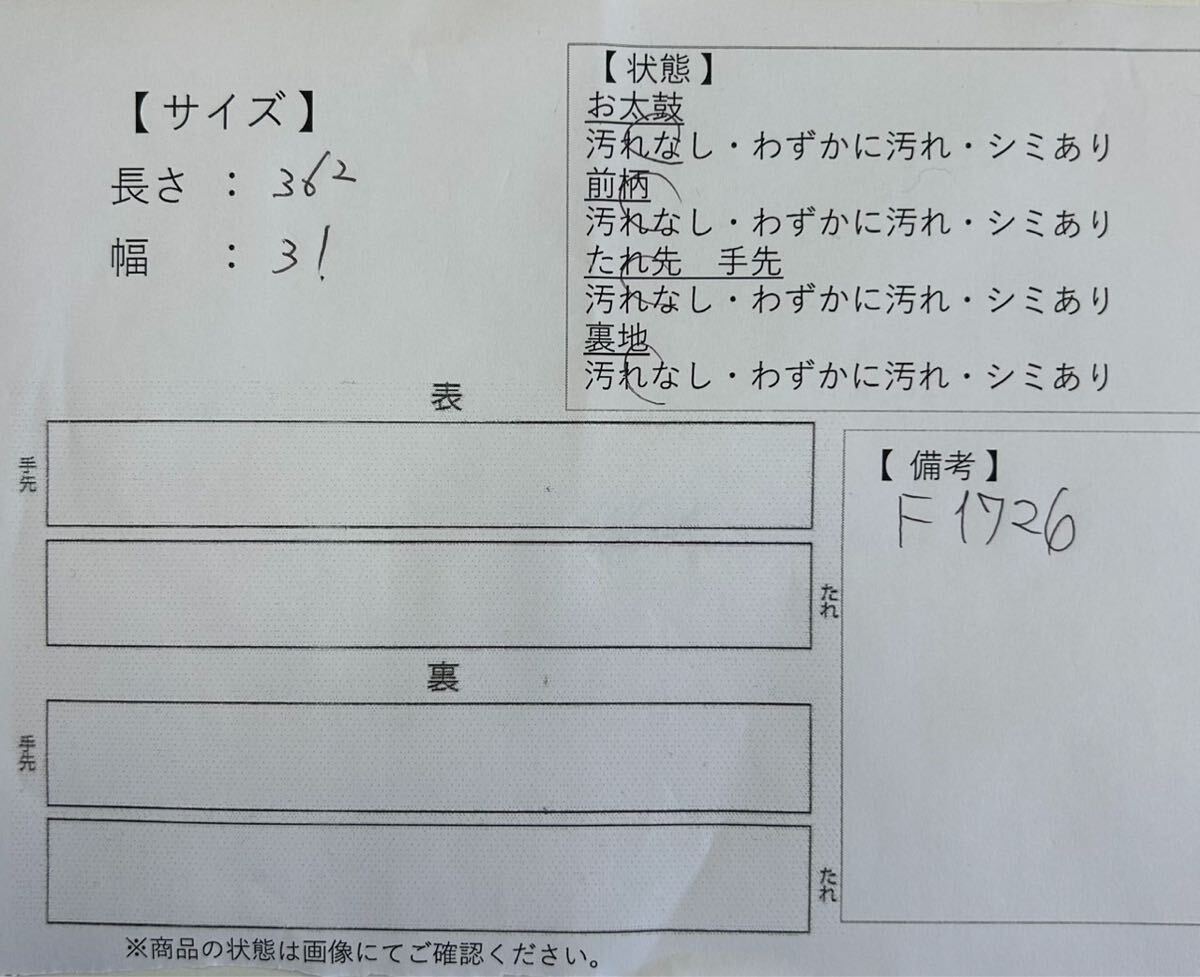 【サイズ】
長さ : 362
幅 : 31
【状態】
お太鼓
汚れなし・わずかに汚れ・シミあり
前柄
汚れなし・わずかに汚れ・シミあり
たれ先 手先
汚れなし・わずかに汚れ・シミあり
裏地
汚れなし・わずかに汚れ・シミあり
表
手先
たれ
裏
手先
たれ
【備考】
F1726
※商品の状態は画像にてご確認ください。